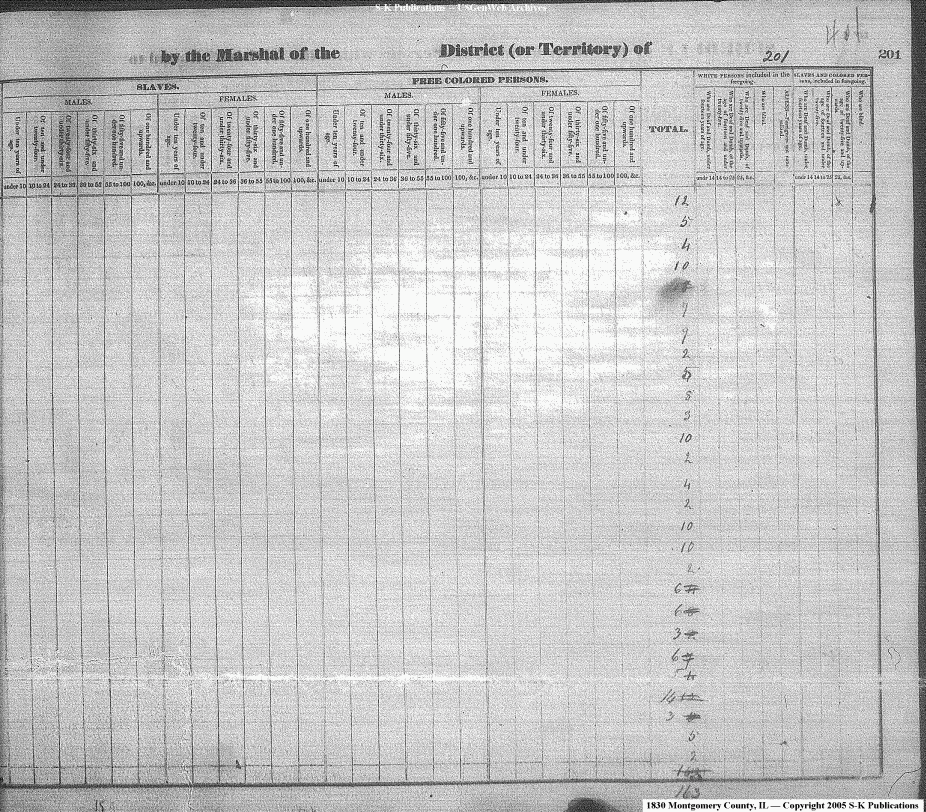 S-K Publications — USGenWeb Archives
by the Marshal of the District (or Territory) of
201 201
SLAVES. FREE COLORED PERSONS. TOTAL. WHITE PERSONS included in the foregoing. SLAVES AND COLORED PERSONS, included in foregoing.
MALES. FEMALES. MALES. FEMALES.
Under ten years of age.
Of ten and under twenty-four.
Of twenty-four and under thirty-six.
Of thirty-six and under fifty-five.
Of fifty-five and under one hundred.
Of one hundred and upwards.
Under ten years of age.
Of ten and under twenty-four.
Of twenty-four and under thirty-six.
Of thirty-six and under fifty-five.
Of fifty-five and under one hundred.
Of one hundred and upwards.
Under ten years of age.
Of ten and under twenty-four.
Of twenty-four and under thirty-six.
Of thirty-six and under fifty-five.
Of fifty-five and under one hundred.
Of one hundred and upwards.
Under ten years of age.
Of ten and under twenty-four.
Of twenty-four and under thirty-six.
Of thirty-six and under fifty-five.
Of fifty-five and under one hundred.
Of one hundred and upwards.
Who are blind.
Who are blind.
under 10 10 to 24 24 to 36 36 to 55 55 to 100 100, &c. under 10 10 to 24 24 to 36 36 to 55 55 to 100 100, &c. under 10 10 to 24 24 to 36 36 to 55 55 to 100 100, &c. under 10 10 to 24 24 to 36 36 to 55 55 to 100 100, &c. undr 14 14 to 25 25, &c. undr 14 14 to 25 25, &c.
12
5
4
10
9
2
5
8
3
10
2
4
2
10
10
2
6
6
3
6
5
14
3
5
2
163
163
1830 Montgomery County, IL — Copyright 2005 S-K Publications